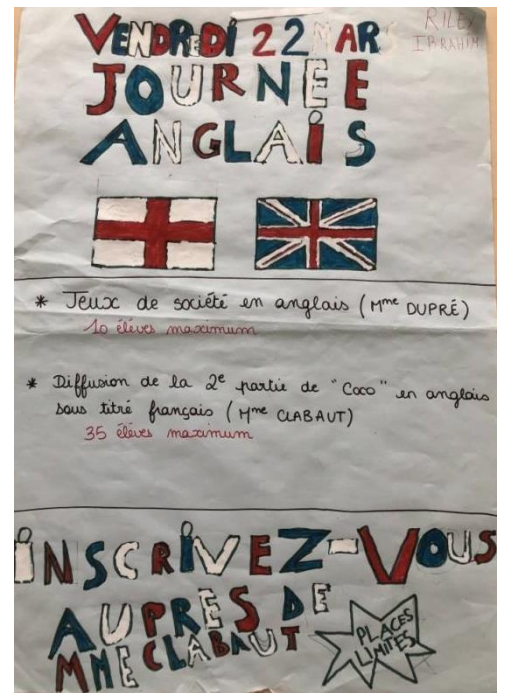 VENDREDi 22 MARS
RILEY
IBRAHIM
JOURNEE
ANGLAiS
* Jeux de société en anglais (Mme DUPRÉ)
10 élèves maximum
* Diffusion de la 2e partie de "Coco" en anglais
sous titré français (Mme CLABAUT)
35 élèves maximum
iNSCRiVEZ-VOUS
AUPRES DE
MME CLABAUT
PLACES
LIMITES